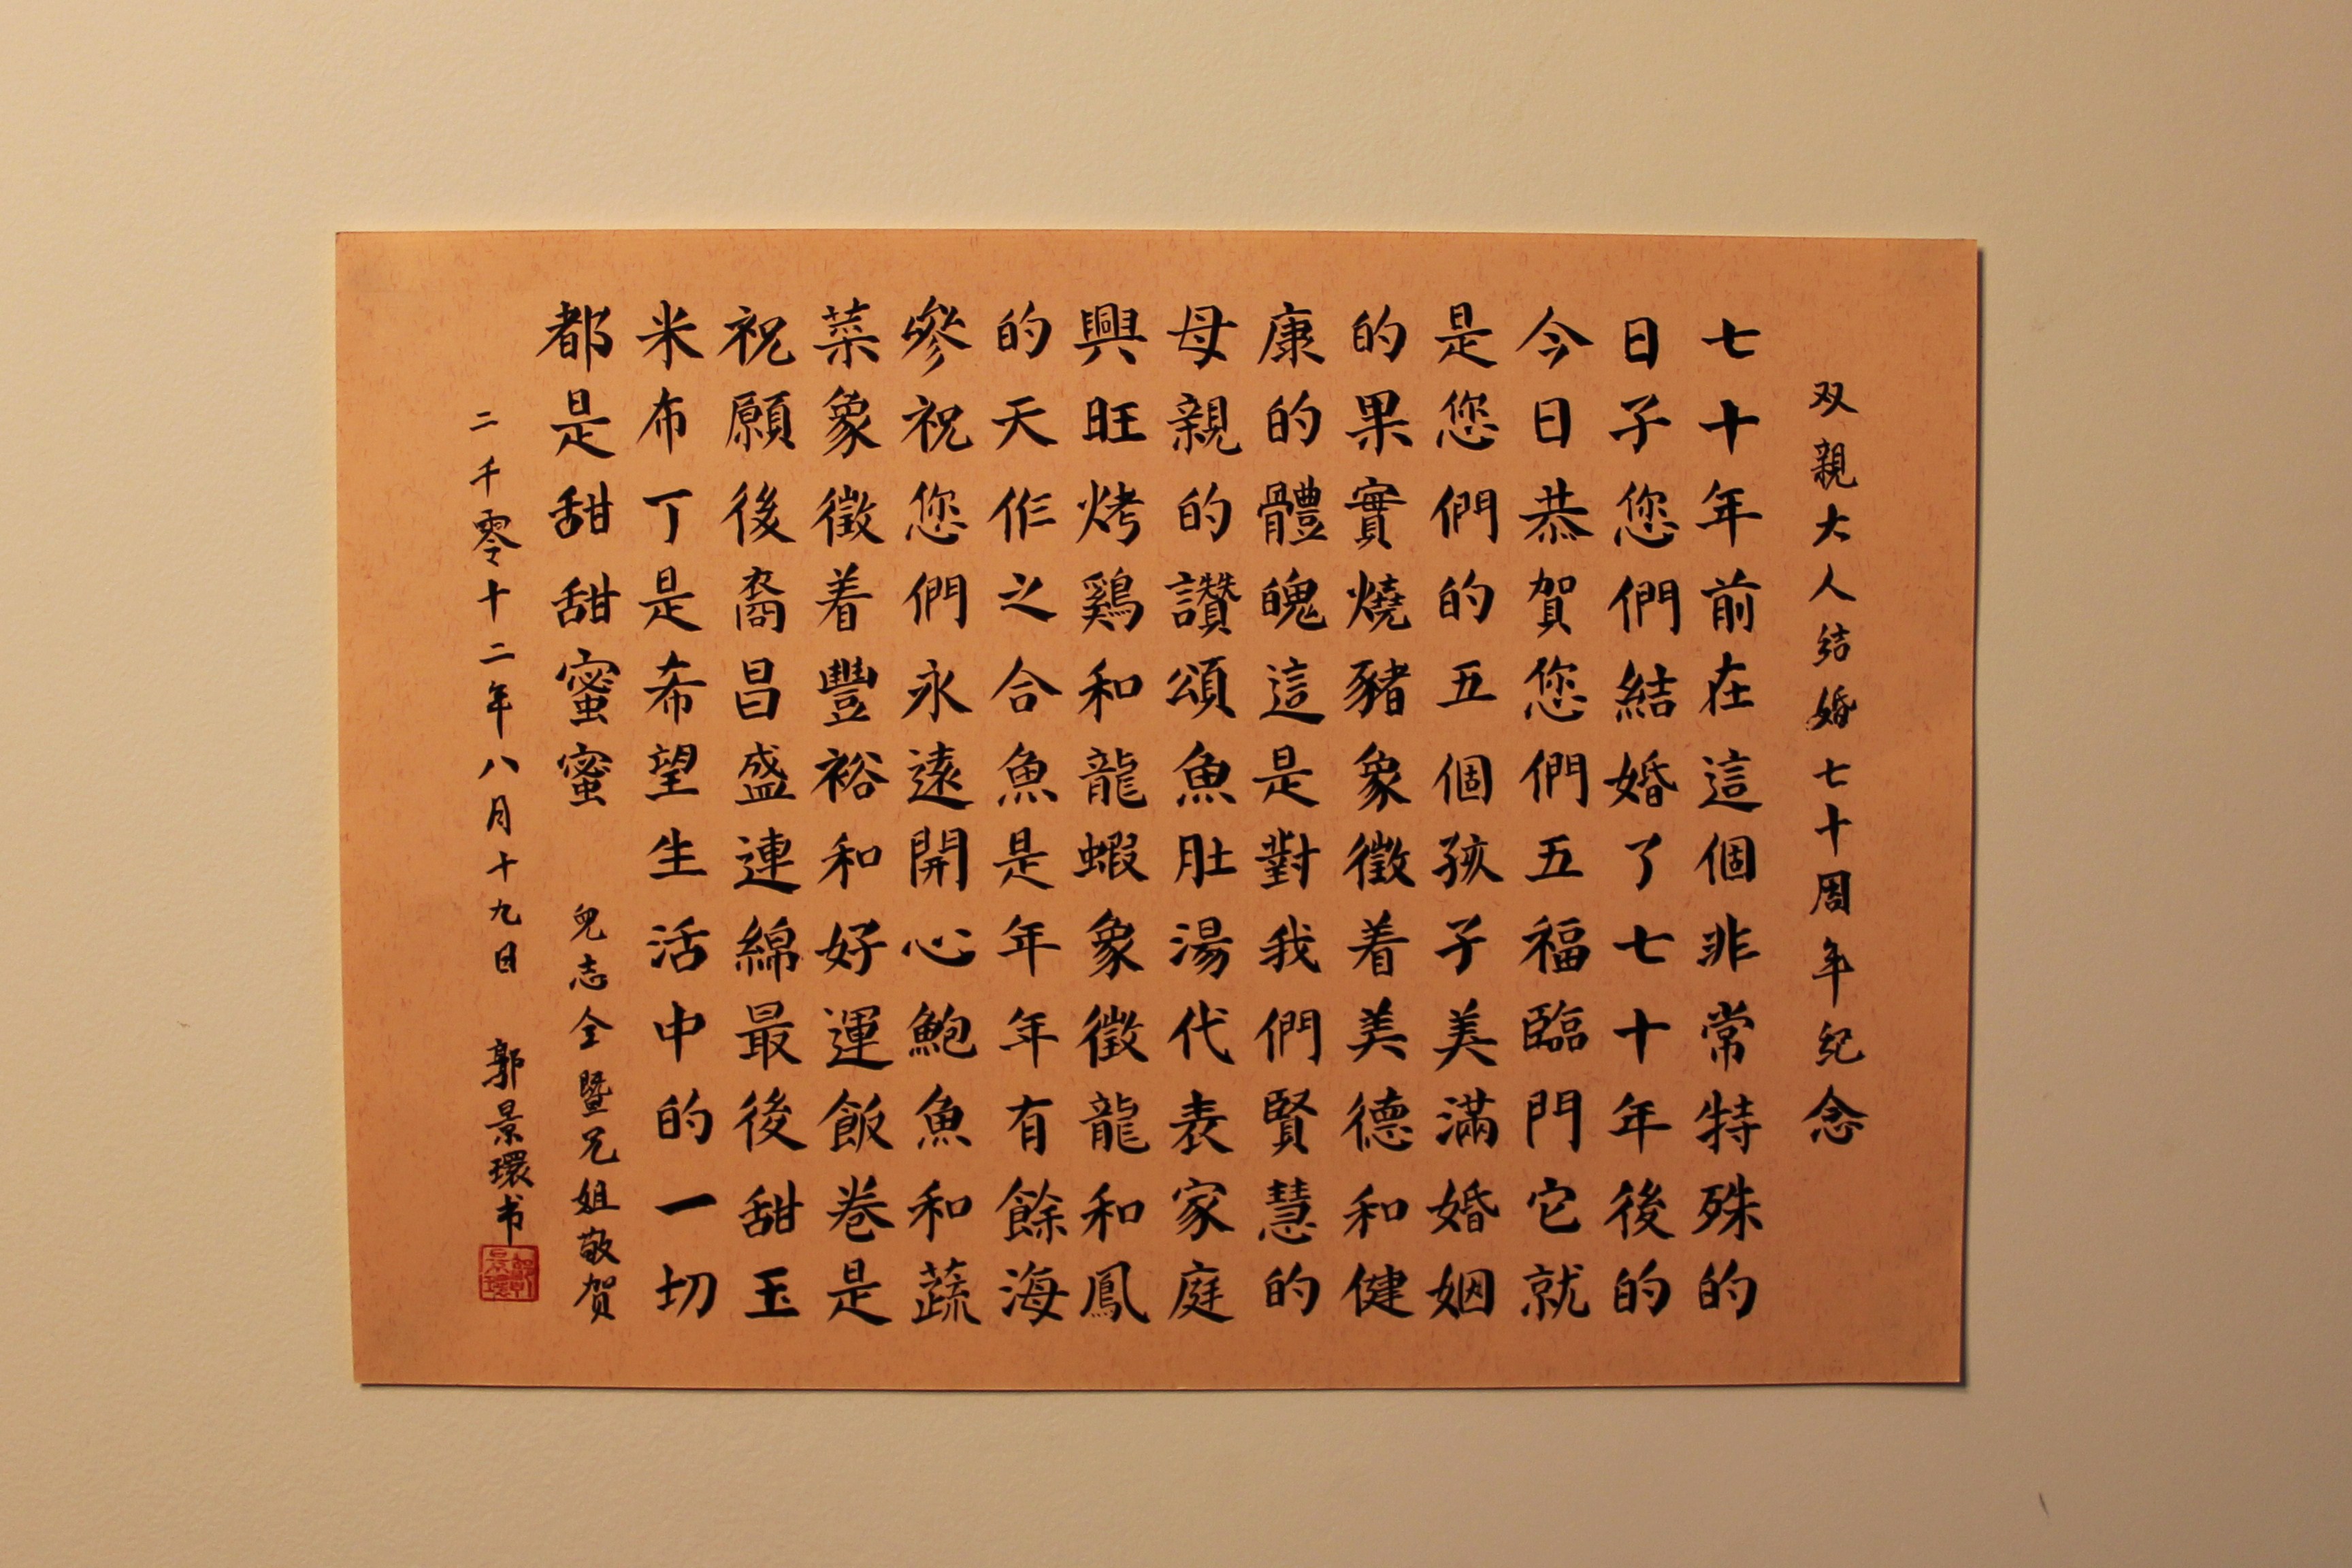 双親大人结婚七十周年纪念
七十年前在這個非常特殊的
日子您們結婚了七十年後的
今日恭賀您們五福臨門它就
是您們的五個孩子美滿婚姻
的果實燒豬象徵着美德和健
康的體魄這是對我們賢慧的
母親的讚頌魚肚湯代表家庭
興旺烤鷄和龍蝦象徵龍和鳳
的天作之合魚是年年有餘海
參祝您們永遠開心鮑魚和蔬
菜象徵着豐裕和好運飯卷是
祝願後裔昌盛連綿最後甜玉
米布丁是希望生活中的一切
都是甜甜蜜蜜 兒志全暨兄姐敬贺
二千零十二年八月十九日 郭景環书